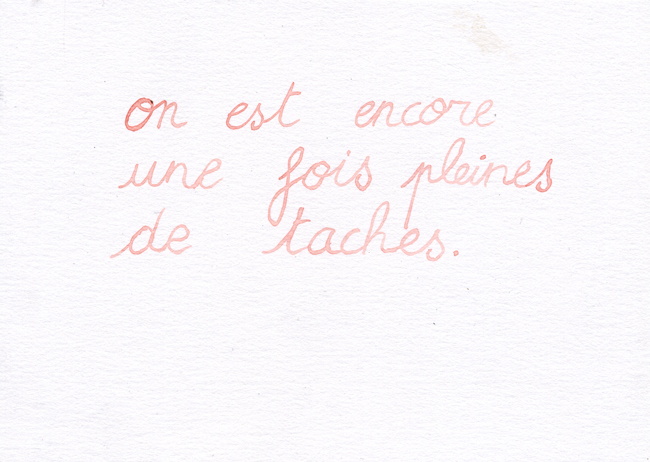 on est encore
une fois pleines
de taches.